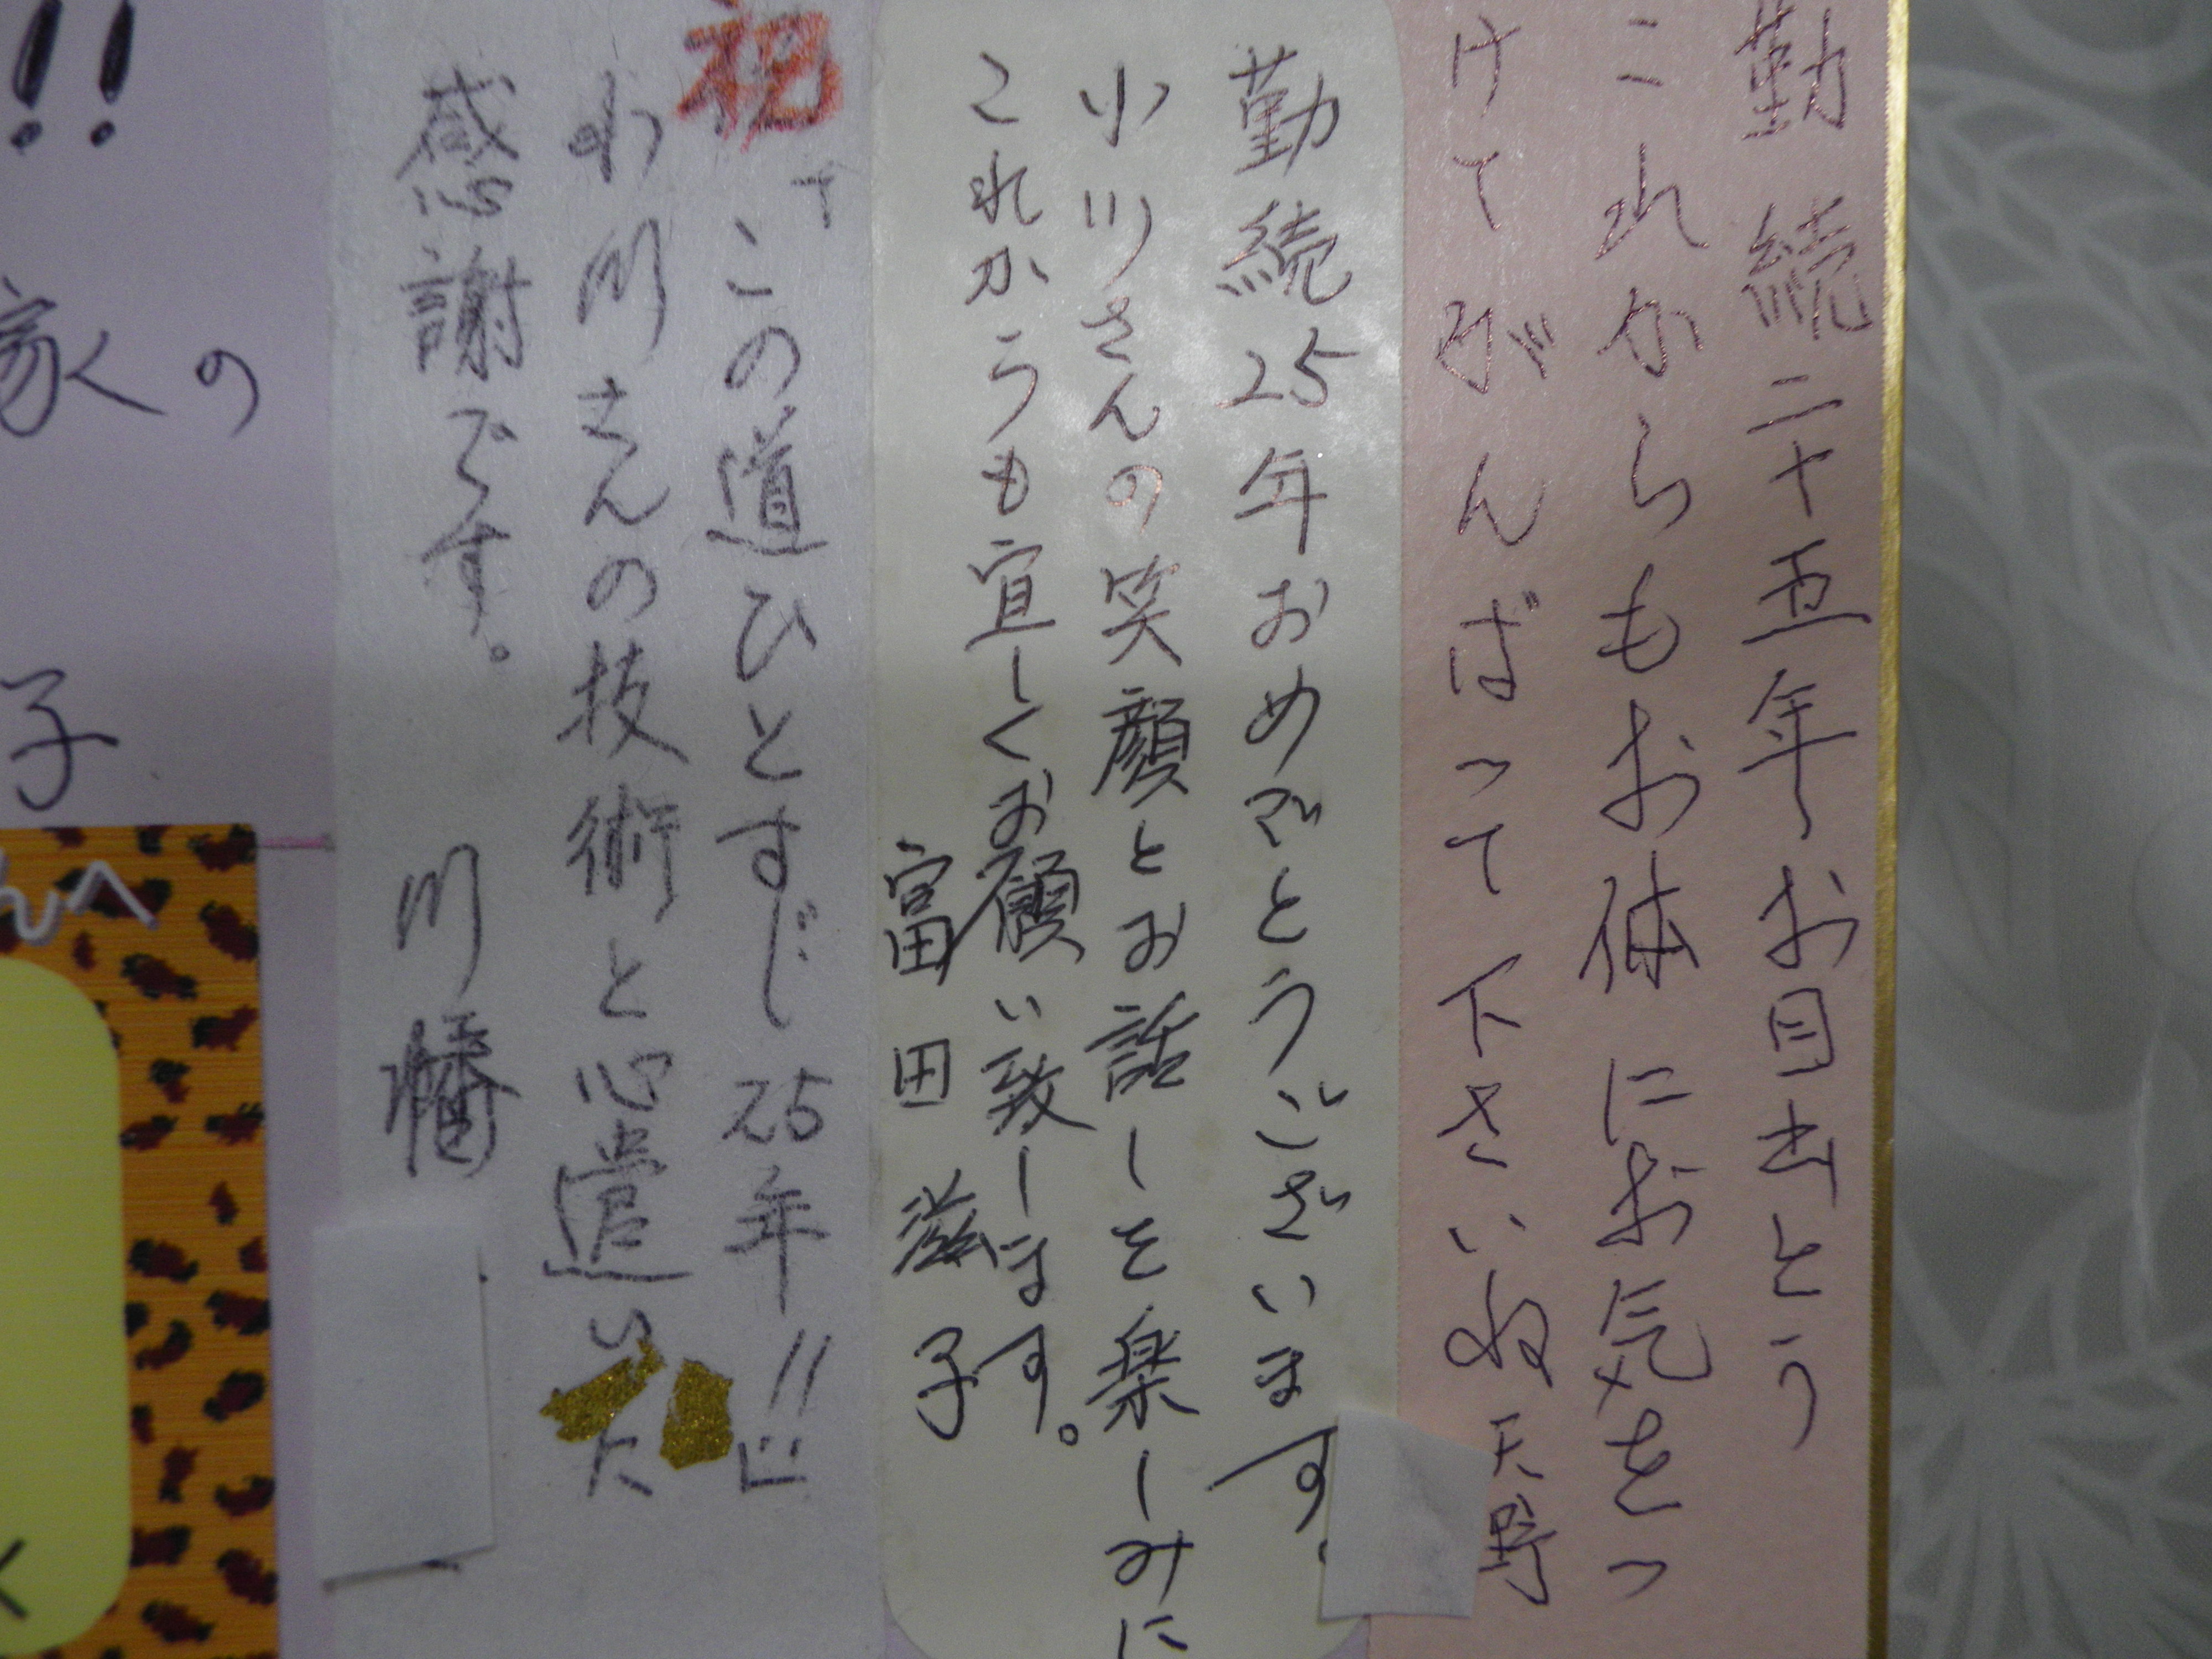 勤続二十五年お目出とう
これからもお体にお気をつ
けてがんばって下さいね 天野
勤続25年おめでとうございます。
小川さんの笑顔とお話しを楽しみに
これからも宜しくお願い致します。
富田 滋子
祝 この道ひとすじ25年!!
小川さんの技術と心遣いに
感謝です。 川幡
!!
家の
子
んへ